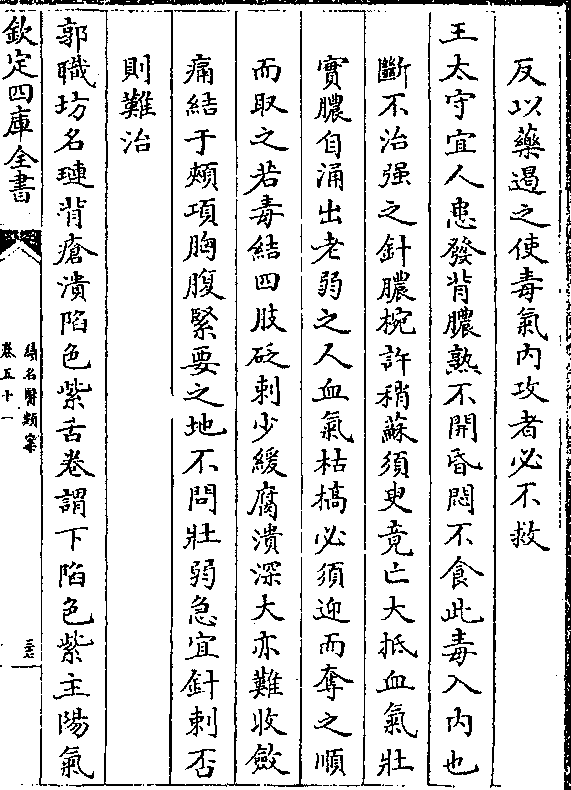 反以藥遏之使毒氣内攻者必不救
王太守宜人患發背膿熟不開昏悶不食此毒入内也
斷不治强之針膿椀許稍蘇須臾竟亡大抵血氣壯
實膿自涌出老弱之人血氣枯槁必須迎而奪之順
而取之若毒結四肢砭刺少緩腐潰深大亦難收斂
痛結于頰項胸腹緊要之地不問壯弱急宜針刺否
則難治
郭職坊名璉背瘡潰陷色紫舌卷謂下陷色紫主陽氣
欽定四庫全書
續名醫類案
卷五十一